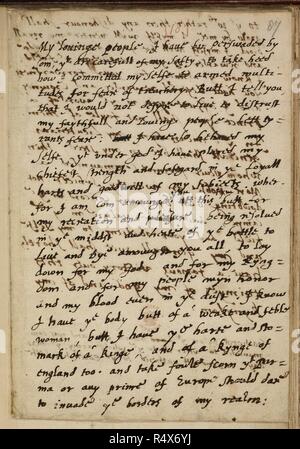 87
My lovinge people, I have bin perswaded by
som, yt are carefull of my safty, to take heed
how I committed my selfe to armed multi-
tudes for fear of treachery. But I tell you
that I would not desyre to live to distrust
my faythfull and lovinge people. Lett ty-
rants feare: I have so behaved my
selfe yt under god I have placed my
chiefest strength and safegard in ye loyall
harts and goodwill of my subjects. wher-
for I am com amoungst at this but for
my recreation and pleasure being resolved
in ye middst and heate of ye battle to
live and dye amoungst you all, to lay
down for my god and for my kyng-
dom and for my people myn honor
and my blood even in ye dust. I know
I have ye body butt of a weake and feble
woman, butt I have ye harte and sto-
mark of a kinge, and of a kynge of
england too. and take foule scorn yt par-
ma or any prince of Europe should dare
to invade ye borders of my realm:
alamy
a
Image ID: R4X6YJ
www.alamy.com